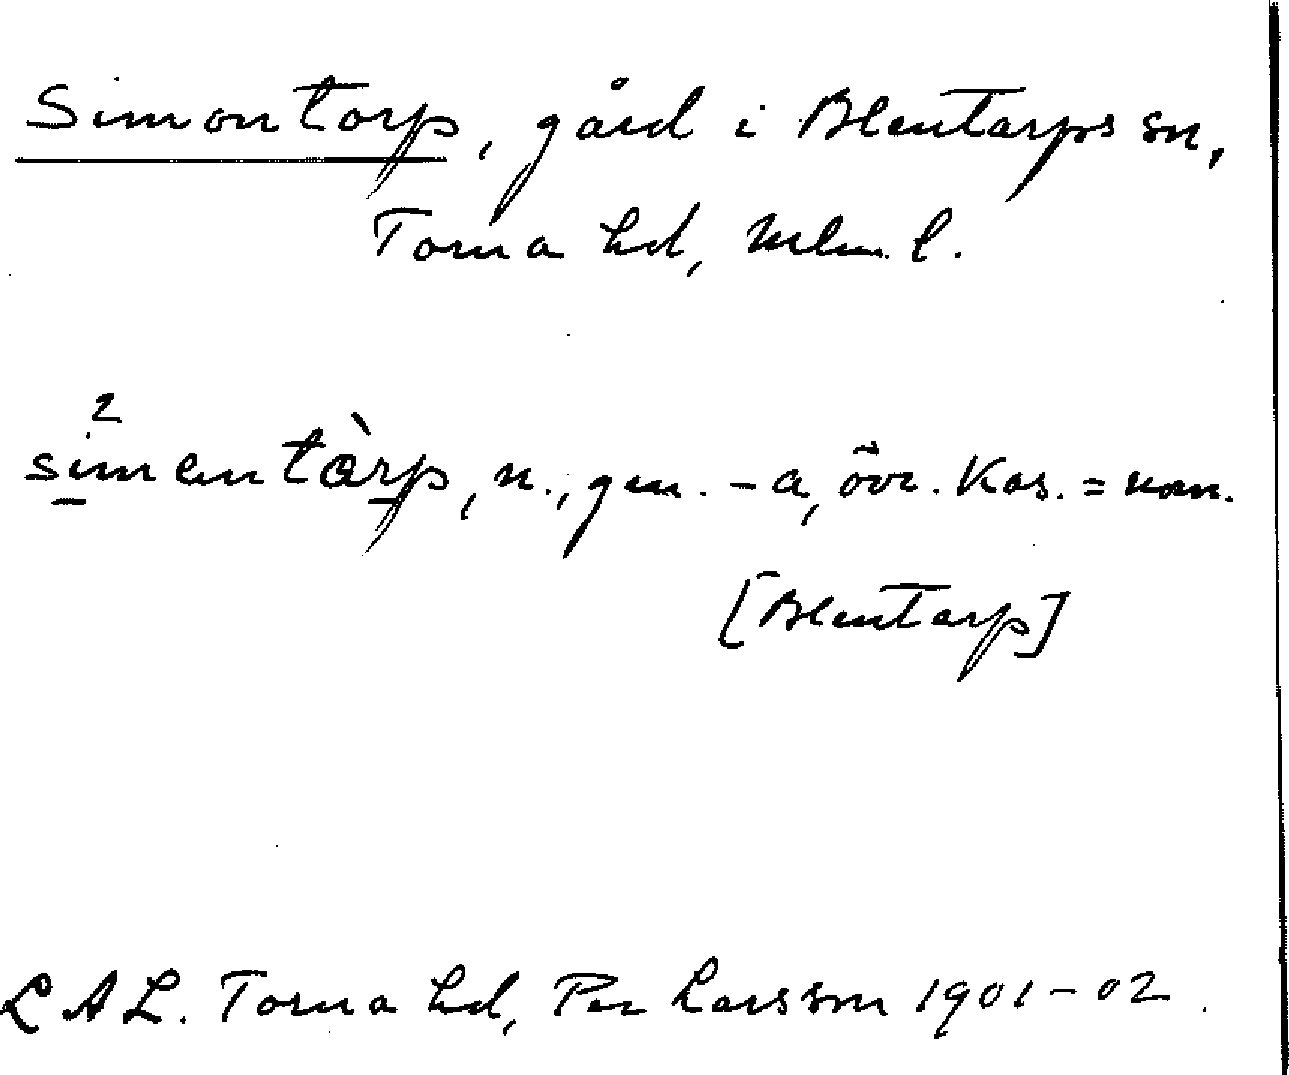 Simontorp, gård i Blentarps sn,
Torna hd, Mlm. l.
2
simentàrp, n., gen. -a, övr. Kas. = nom.
[Blentarp]
LAL. Torna hd, Per Larsson 1901-02.